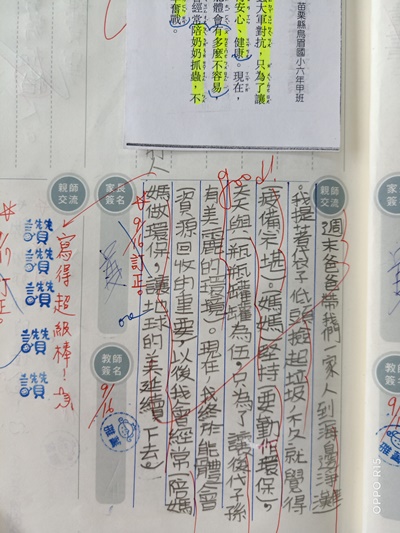 苗栗縣烏眉國小六年甲班
大軍對抗，只為了讓
安心、健康。現在，
體會有多麼不容易，
經常陪奶奶抓蟲，不
奮戰。
親師交流
週末爸爸帶我們一家人到海邊淨灘
。我提著袋子低頭撿起垃圾，不久就覺得
疲憊不堪。媽媽堅持要動作環保，
天天與瓶瓶罐罐為伍，只為了讓後代子孫
有美麗的環境。現在，我終於能體會
資源回收的重要，以後我會經常陪媽
媽做環保，讓地球的美延續下去。
good!
家長簽名
教師簽名
9/16
9/16訂正。
親師交流
寫得超級棒！
讚讚讚讚讚
9/17訂正。
家長簽名
教師簽名
OPPO R15